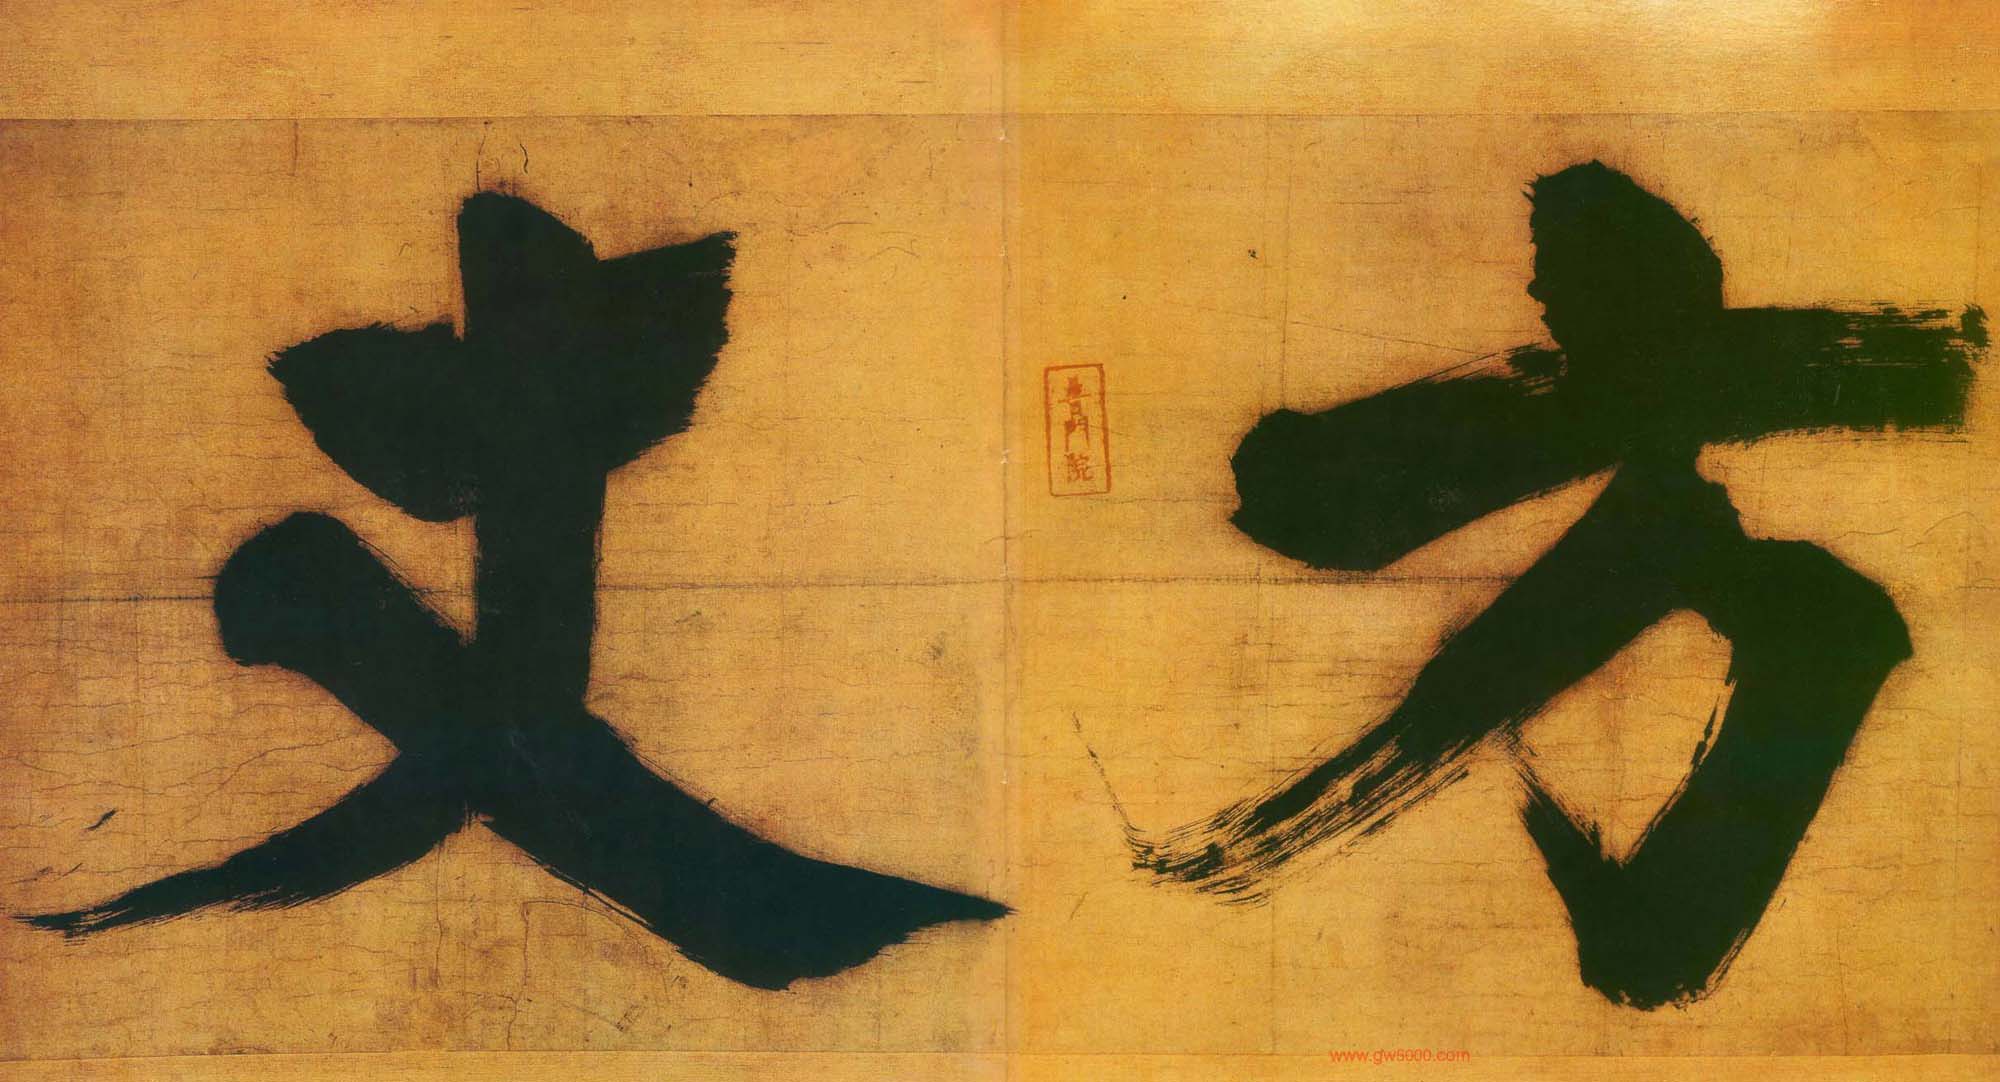 方丈
普門院
www.gw5000.com